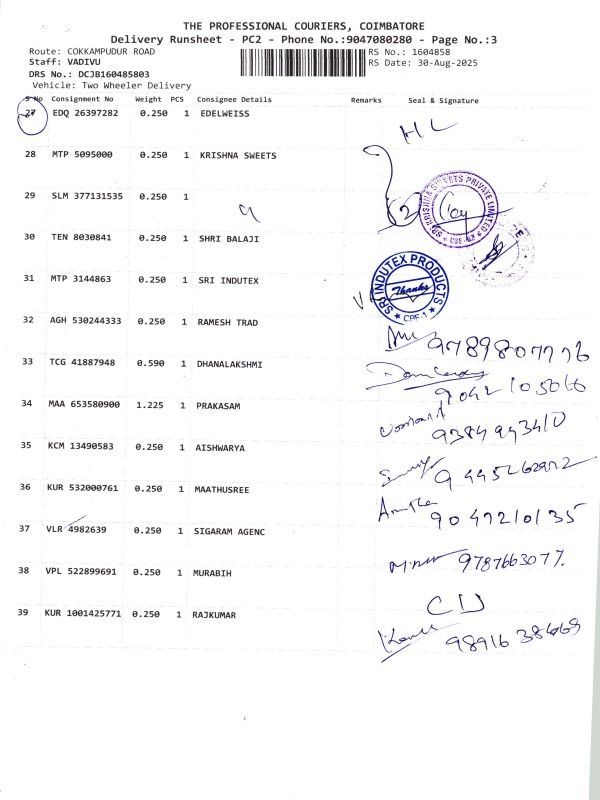 THE PROFESSIONAL COURIERS, COIMBATORE
Delivery Runsheet - PC2 - Phone No.:9047080280 - Page No.:3
Route: COKKAMPUDUR ROAD
Staff: VADIVU
DRS No.: DCJB160485803
Vehicle: Two Wheeler Delivery
RS No.: 1604858
RS Date: 30-Aug-2025
S No Consignment No Weight PCS Consignee Details Remarks Seal & Signature
27 EDQ 26397282 0.250 1 EDELWEISS
HL
28 MTP 5095000 0.250 1 KRISHNA SWEETS
SRI KRISHNA SWEETS PRIVATE LIMITED
CBE-02
29 SLM 377131535 0.250 1
30 TEN 8030841 0.250 1 SHRI BALAJI
31 MTP 3144863 0.250 1 SRI INDUTEX
SRI INDUTEX PRODUCTS
Thanks
CBE-1
32 AGH 530244333 0.250 1 RAMESH TRAD
9789807776
33 TCG 41887948 0.590 1 DHANALAKSHMI
9042105066
34 MAA 653580900 1.225 1 PRAKASAM
9384943410
35 KCM 13490583 0.250 1 AISHWARYA
9445262972
36 KUR 532000761 0.250 1 MAATHUSREE
9047210135
37 VLR 4982639 0.250 1 SIGARAM AGENC
9787663077.
38 VPL 522899691 0.250 1 MURABIH
39 KUR 1001425771 0.250 1 RAJKUMAR